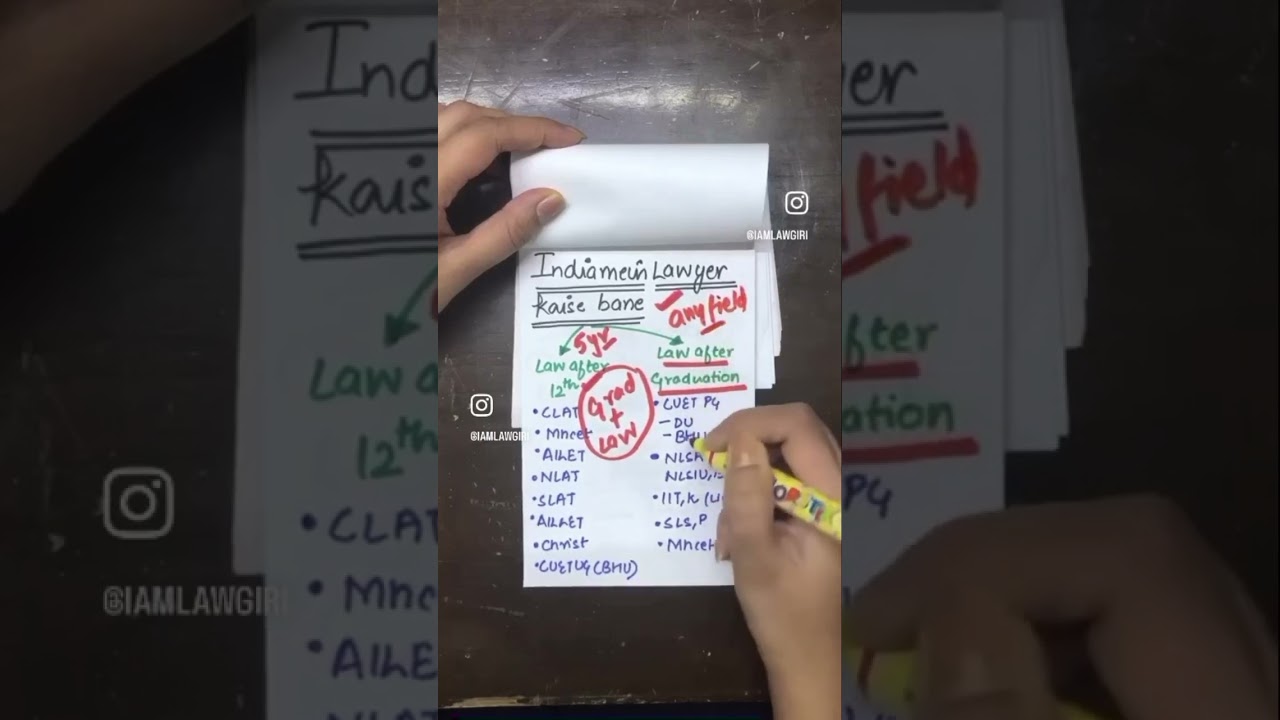 Indiamein Lawyer
Kaise bane
any field
5yr
Law after
12th
Grad
+
Law
• CLAT
• Mhcet
• AILET
• NLAT
• SLAT
• AILLET
• Christ
• CUETUG (BHU)
Law after
Graduation
• CUET PG
– DU
– BHU
•
NLSIU,
• IIT, K
• SLS, P
• Mhcet
@IAMLAWGIRI
@IAMLAWGIRI
@IAMLAWGIRI